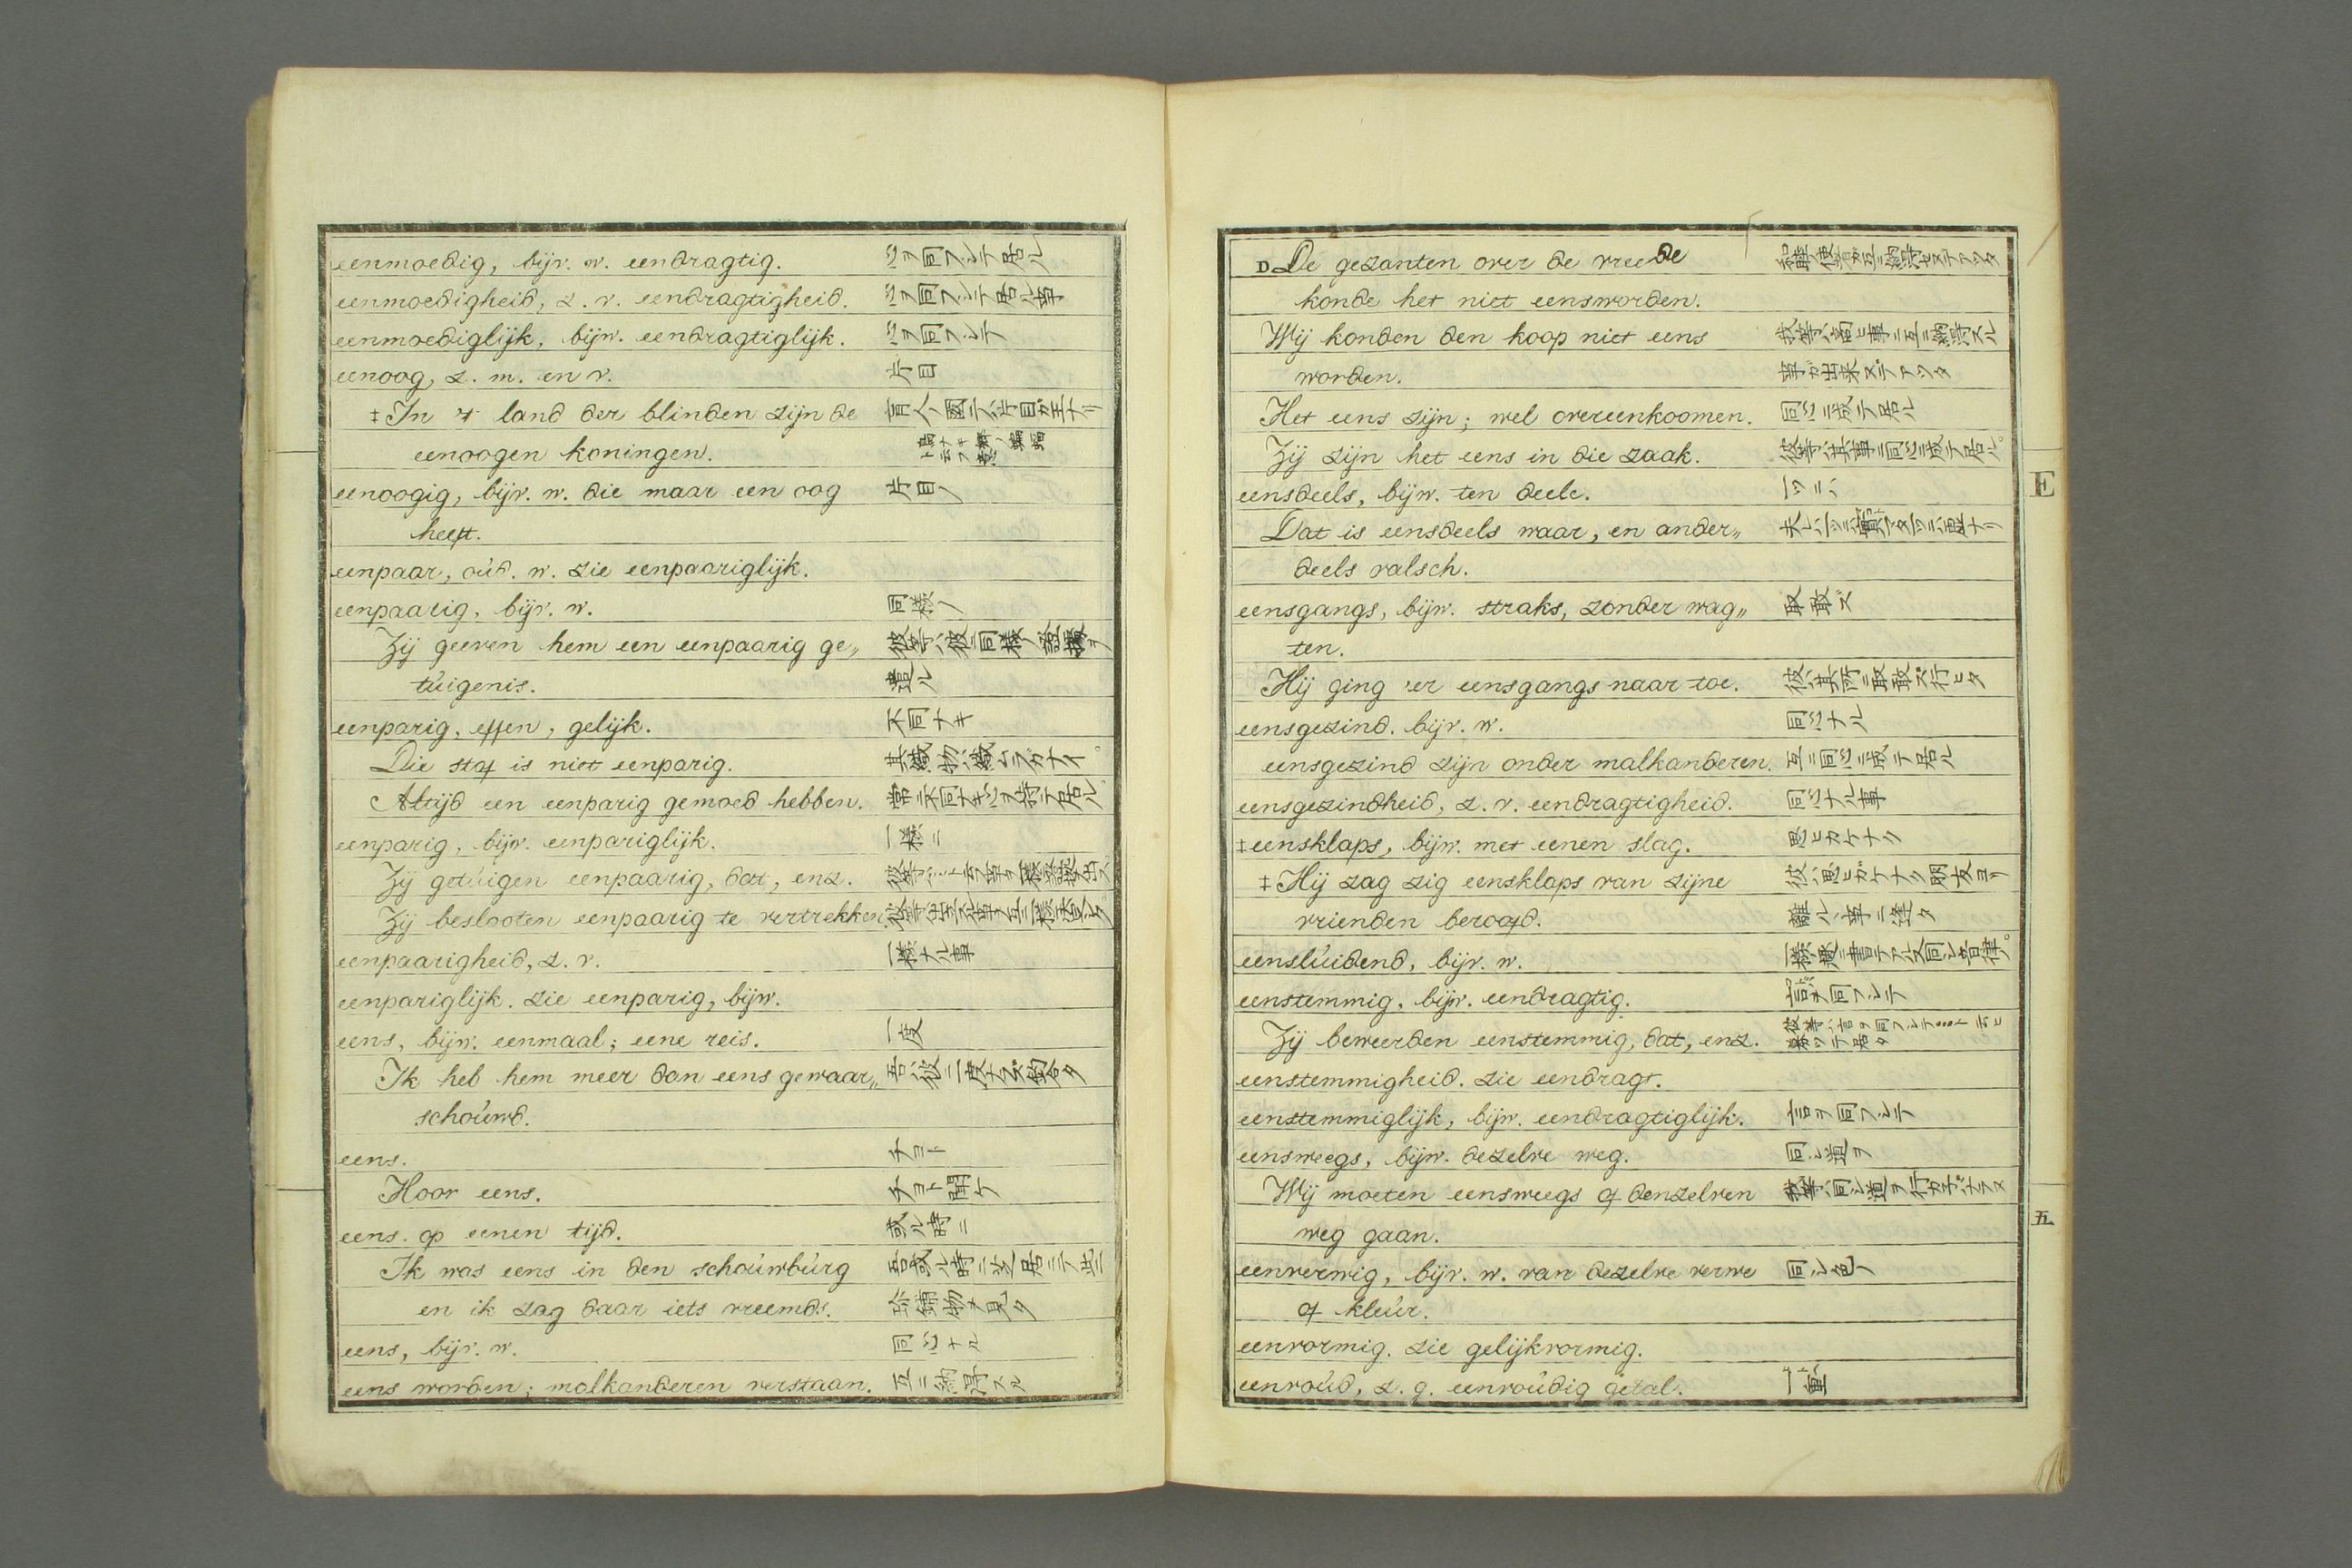 eenmoedig, bijv. w. eendragtig. 心ヲ同フシテ居ル
eenmoedigheid, z. v. eendragtigheid. 心ヲ同フシテ居ル事
eenmoediglijk, bijw. eendragtiglijk. 心ヲ同フシテ
eenoog, z. m. en v. 片目
‡In 't land der blinden zijn de 盲人ノ國デハ片目ガ王ナリ
eenoogen koningen. 鳥ナキ里ノ蝙蝠
eenoogig, bijv. w. die maar een oog 片目ノ
heeft.
eenpaar, oúd. w. zie eenpaariglijk.
eenpaarig, bijv. w. 同様ノ
Zij geeven hem een eenpaarig ge„ 彼等ハ彼ニ同様ノ證據ヲ
túigenis. 遣ル
eenparig, effen, gelijk. 不同ナキ
Die stof is niet eenparig. 其織物ハ織ムラガナイ。
Altijd een eenparig gemoed hebben. 常ニ不同ナキ心ヲ持テ居ル
eenparig, bijw. eenpariglijk. 一様ニ
Zij getúigen eenpaarig, dat, enz.
Zij beslooten eenpaarig te vertrekken.
eenpaarigheid, z. v. 一様ナル事
eenpariglijk. zie eenparig, bijw.
eens, bijw. eenmaal; eene reis. 一度
Ik heb hem meer dan eens gewaar„
schoúwd.
eens. チヨト
Hoor eens. チヨト聞ケ
eens. op eenen tijd. 或ル時ニ
Ik was eens in den schoúwbúrg 吾或ル時ニ芝居ニテ些ニ
en ik zag daar iets vreemds. 珍鋪物ヲ見タ
eens, bijv. w. 同心ナル
eens worden; malkanderen verstaan. 互ニ納得スル
D De gezanten over de vreede 和睦ノ使者ガ互ニ納得セズデアツタ
konde het niet eensworden.
Wij konden den koop niet eens 我等ハ商ヒ事ニ互ニ納得スル
worden. 事ガ出来ズデアツタ
Het eens zijn; wel overeenkoomen. 同心ニ成テ居ル
Zij zijn het eens in die zaak. 彼等ハ其事ニ同心ニ成テ居ル。
eensdeels, bijw. ten deele. 一ツニハ
Dat is eensdeels waar, en ander„
deels valsch.
eensgangs, bijw. straks, zonder wag„ 取敢ズ
ten.
Hij ging 'er eensgangs naar toe. 彼ハ其所ニ取敢ズ行ヒタ
eensgezind. bijv. w. 同心ナル
eensgezind zijn onder malkanderen. 互ニ同心ニ成テ居ル
eensgezindheid, z. v. eendragtigheid. 同心ナル事
‡eensklaps, bijw. met eenen slag. 思ヒカケナク
‡Hij zag zig eensklaps van zijne 彼ハ思ヒガケナク朋友ヨリ
vrienden beroofd. 離ルヽ事ニ逢タ
eenslúidend, bijv. w.
eenstemmig, bijv. eendragtig. 言ヲ同フシテ
Zij beweerden eenstemmig, dat, enz. 彼等ハ言ヲ同フシテ
eenstemmigheid. zie eendragt.
eenstemmiglijk, bijw. eendragtiglijk. 言ヲ同フシテ
eensweegs, bijw. dezelve weg. 同シ道ヲ
Wij moeten eensweegs of denzelven 我等ハ同シ道ヲ行カネバナラヌ
weg gaan.
eenverwig, bijv. w. van dezelve verwe 同シ色ノ
of kleúr.
eenvormig. zie gelijkvormig.
eenvoúd, z. g. eenvoúdig getal. 一重
E
五